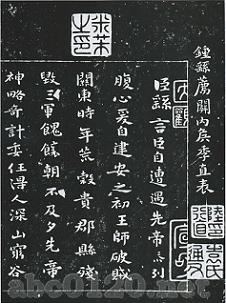 鍾繇薦關內侯季直表
臣繇言臣自遭遇先帝忝列
腹心爰自建安之初王師破賊
關東時年荒穀貴郡縣殘
毀三軍餽饟朝不及夕先帝
神略奇計委任得人深山窮谷
米芾之印
大觀
abc0120.net